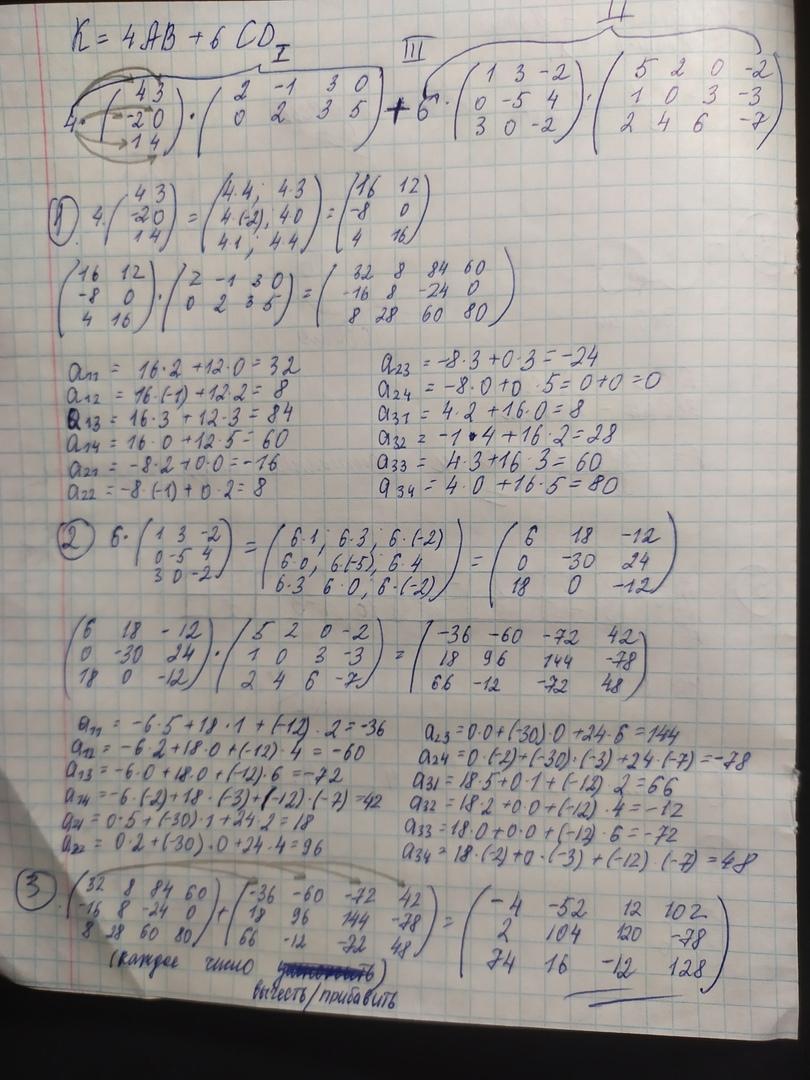 K = 4AB + 6 CD
I III II
4 · (4 3 / -2 0 / 1 4) · (2 -1 3 0 / 0 2 3 5) + 6 · (1 3 -2 / 0 -5 4 / 3 0 -2) · (5 2 0 -2 / 1 0 3 -3 / 2 4 6 -7)
1) 4 · (4 3 / -2 0 / 1 4) = (4·4; 4·3 / 4·(-2); 4·0 / 4·1; 4·4) = (16 12 / -8 0 / 4 16)
(16 12 / -8 0 / 4 16) · (2 -1 3 0 / 0 2 3 5) = (32 8 84 60 / -16 8 -24 0 / 8 28 60 80)
a11 = 16·2 +12·0 = 32
a12 = 16·(-1) +12·2 = 8
a13 = 16·3 + 12·3 = 84
a14 = 16·0 +12·5 = 60
a21 = -8·2 +0·0 = -16
a22 = -8·(-1) + 0·2 = 8
a23 = -8·3 +0·3 = -24
a24 = -8·0 +0·5 = 0+0 = 0
a31 = 4·2 +16·0 = 8
a32 = -1·4 +16·2 = 28
a33 = 4·3 +16·3 = 60
a34 = 4·0 +16·5 = 80
2) 6 · (1 3 -2 / 0 -5 4 / 3 0 -2) = (6·1; 6·3; 6·(-2) / 6·0; 6(-5); 6·4 / 6·3 6·0; 6·(-2)) = (6 18 -12 / 0 -30 24 / 18 0 -12)
(6 18 -12 / 0 -30 24 / 18 0 -12) · (5 2 0 -2 / 1 0 3 -3 / 2 4 6 -7) = (-36 -60 -72 42 / 18 96 144 -78 / 66 -12 -72 48)
a11 = -6·5 +18·1 + (-12)·2 = -36
a12 = -6·2 +18·0 +(-12)·4 = -60
a13 = -6·0 +18·0 +(-12)·6 = -72
a14 = -6·(-2) +18·(-3) +(-12)·(-7) = 42
a21 = 0·5 +(-30)·1 +24·2 = 18
a22 = 0·2 +(-30)·0 +24·4 = 96
a23 = 0·0 +(-30)·0 +24·6 = 144
a24 = 0·(-2) +(-30)·(-3) +24·(-7) = -78
a31 = 18·5 +0·1 +(-12)·2 = 66
a32 = 18·2 +0·0 +(-12)·4 = -12
a33 = 18·0 +0·0 +(-12)·6 = -72
a34 = 18·(-2) +0·(-3) +(-12)·(-7) = 48
3) (32 8 84 60 / -16 8 -24 0 / 8 28 60 80) + (-36 -60 -72 42 / 18 96 144 -78 / 66 -12 -72 48) = (-4 -52 12 102 / 2 104 120 -78 / 74 16 -12 128)
(каждое число )
вычесть/прибавить